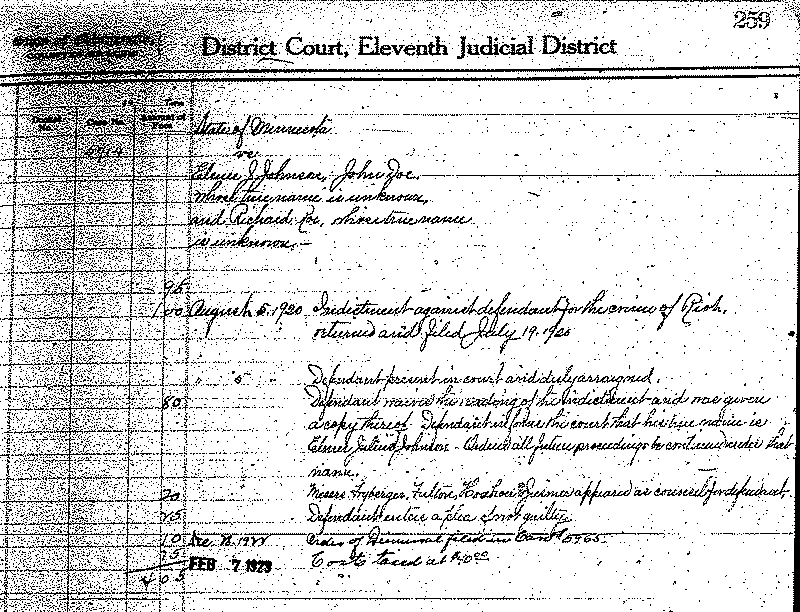 259
District Court, Eleventh Judicial District
Amount of Fees
State of Minnesota
vs.
Elmer J. Johnson, John Doe,
whose true name is unknown,
and Richard Roe, whose true name
is unknown.—
95
1 00 August 5, 1920 Indictment against defendant for the crime of Riot,
returned and filed July 19, 1920
" 5 " Defendant present in court and duly arraigned.
80 Defendant waives the reading of the indictment and was given
a copy thereof. Defendant informs the court that his true name is
Elmer Julius Johnson - Ordered all future proceedings be continued under that
name.
20 Messrs Fryberger, Fulton, Hoshour appeared as counsel for defendant.
25 Defendant enters a plea of not guilty.
10 Dec. 1922 Order of Dismissal filed in Case # 5965.
75 FEB 7 1923 Costs taxed at
4 05